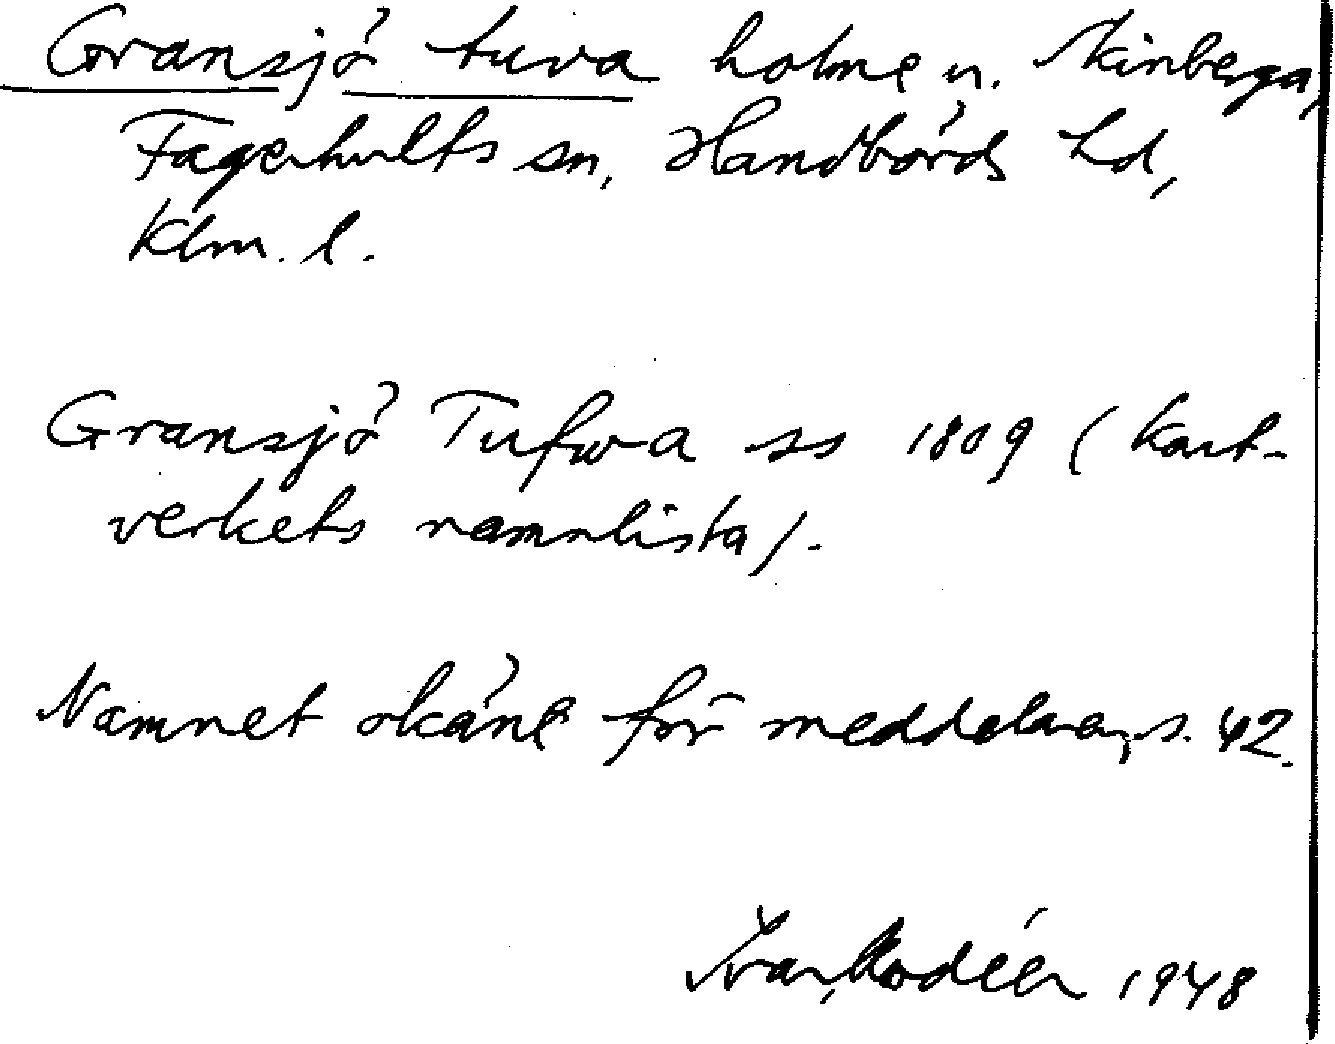 Gransjö tuva holme u. Kinberga,
Fagerhults sn, Handbörds hd,
Klm. l.
Gransjö Tufwa ss 1809 (Kart-
verkets namnlista).
Namnet okänt för meddelare, s. 42.
Ivar Modéer 1948